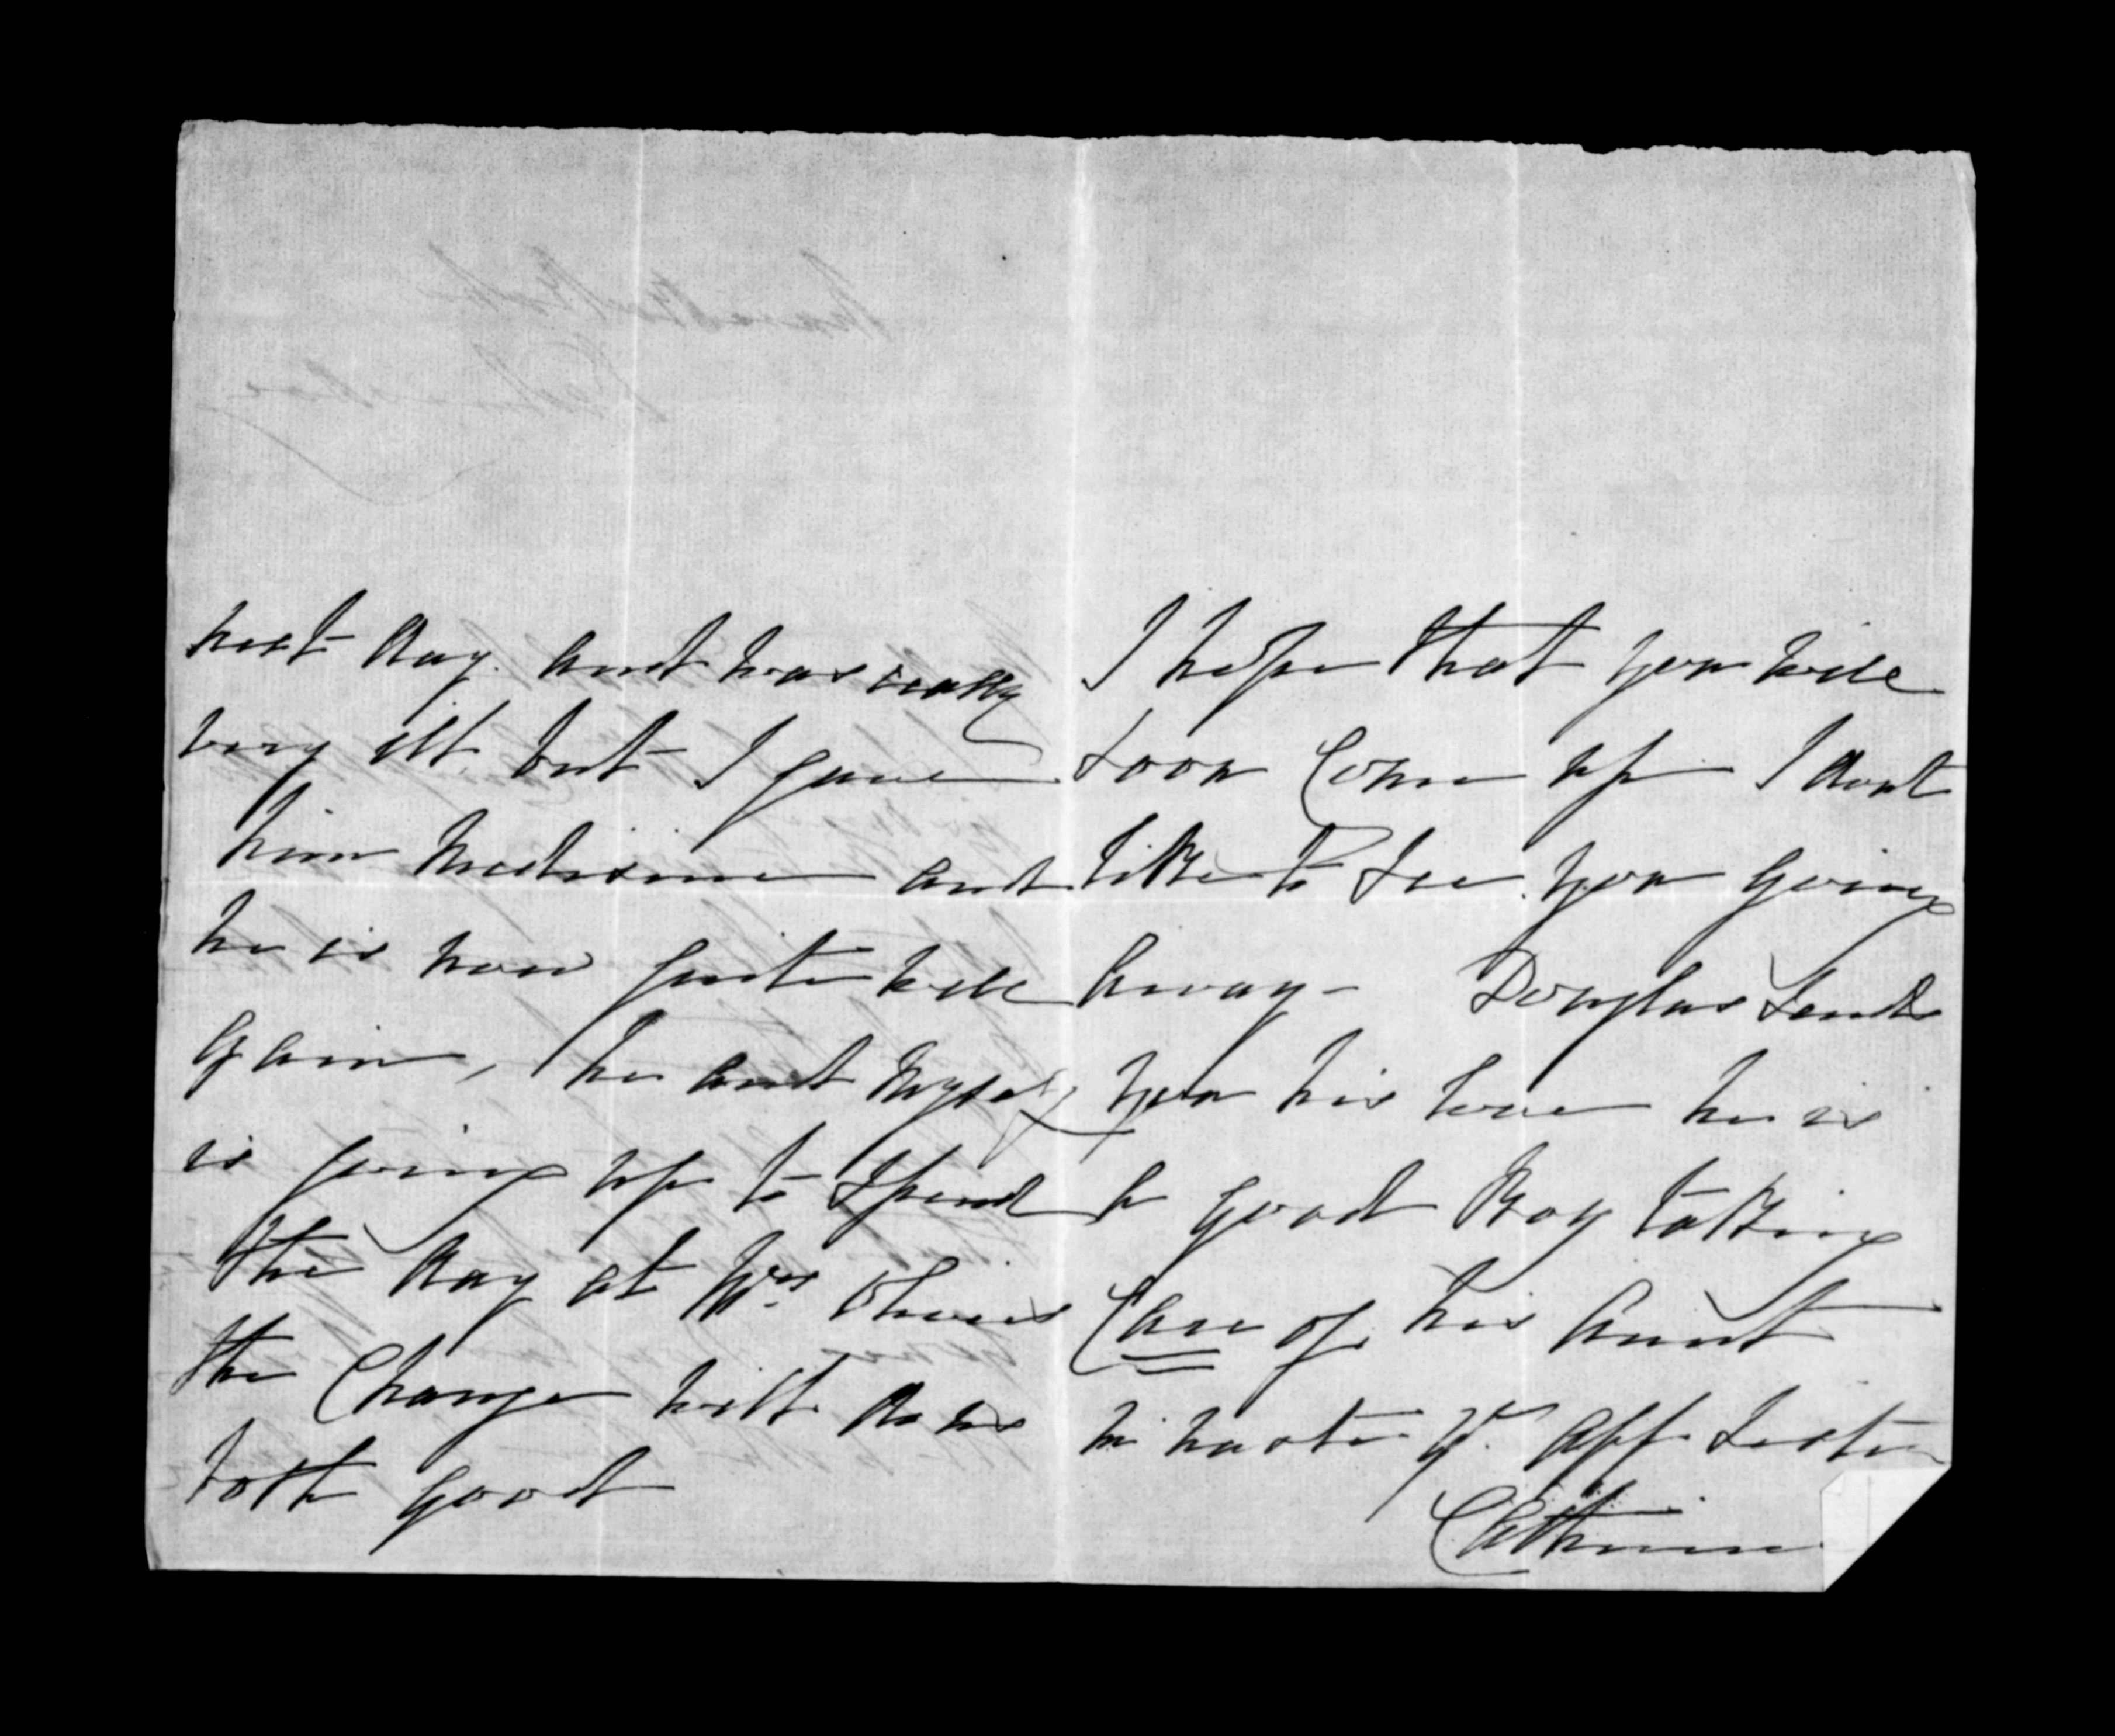 next day. and was really
very ill. but I gave
him medisine and
he is now quite well
again, he and myself
is going up to spend
the day at Mrs
the Change will do us
both good
I hope that you will
soon Come up I dont
like to see you going
away - Douglas sends
you his love he is
a good Boy taking
Care of his Aunt
in haste yr. aff. sister
Catherine